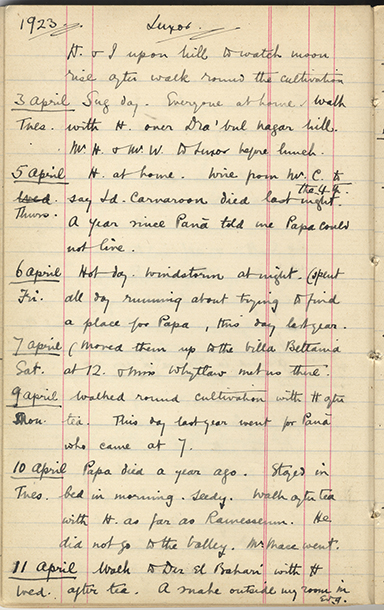 1923. Luxor.
H. & I upon hill to watch moon
rise after walk round the cultivation
3 April Sug day. Everyone at home. Walk
Tues. with H. over Dra' bul nagar hill.
Mr. H. & Mr. W. to Luxor before lunch.
5 April H. at home. Wire from Mr. C. to
Wed the 4th
Thurs. say Ld. Carnarvon died last night.
A year since Pana told me Papa could
not live.
6 April Hot day. Windstorm at night. (Spent
Fri. all day running about trying to find
a place for Papa, this day last year.
7 April (Moved them up to the Villa Bettania
Sat. at 12. & Miss Whytlaw met us there.
9 April Walked round cultivation with H after
Mon. tea. This day last year went for Pana
who came at 7.
10 April Papa died a year ago. Stayed in
Tues. bed in morning. Seedy. Walk after tea
with H. as far as Ramesseum. He
did not go to the Valley. Mr Mace went.
11 April Walk to Der el Bahari with H
Wed. after tea. A snake outside my room in